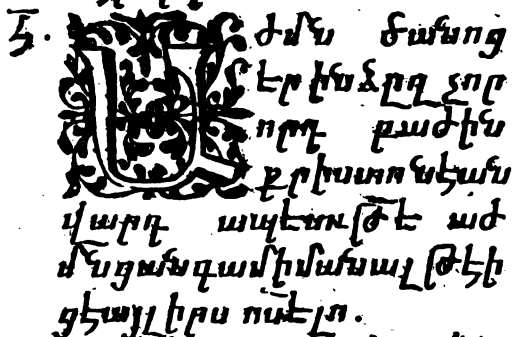 Է. Աժմն ծանոց
էր ինձ ըզ չոր
որդ բաժին
քրիստոնէան
վարդ ապետութէ աժ
մնցանգամիմանալ թէի
ցէայլ իրս ուսելո.